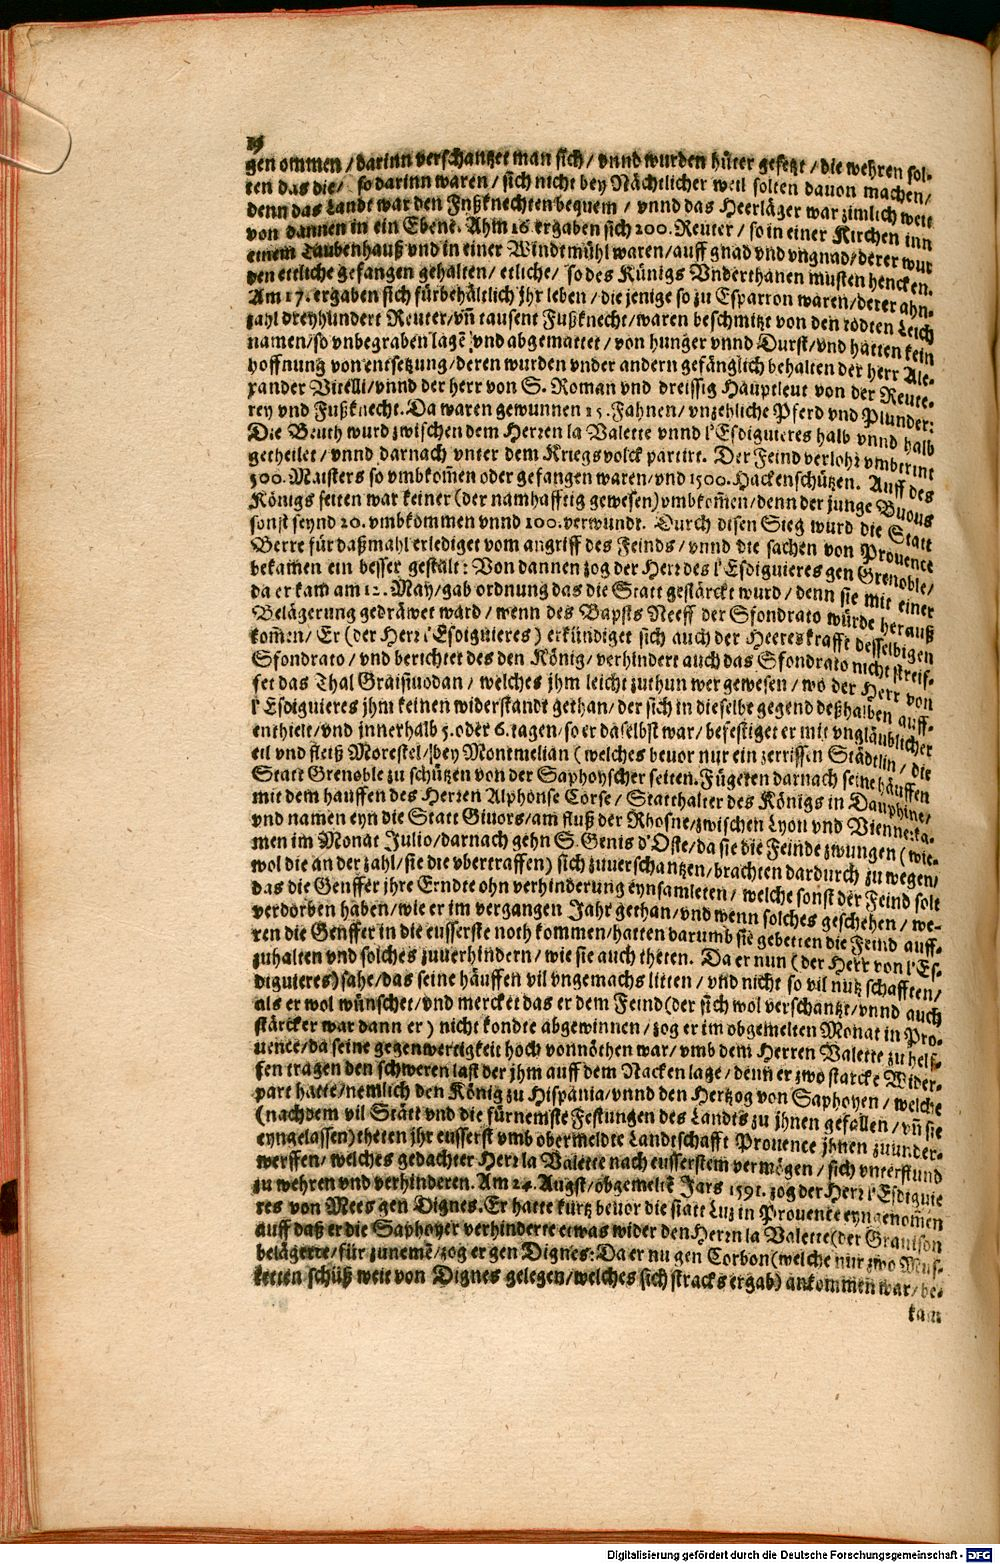 gen ommen / darinn verschantzet man sich / vnnd wurden hüter gesetzt / die wehren sol-
ten das die / so darinn waren / sich nicht bey Nächtlicher weil solten dauon machen /
denn das Landt war den Fußknechten bequem / vnnd das Heerläger war zimlich weit
von dannen in ein Ebene. Ahm 16 ergaben sich 200. Reuter / so in einer Kirchen inn
einem Taubenhauß vnd in einer Windtmühl waren / auff gnad vnd vngnad / derer wur
den ettliche gefangen gehalten / etliche / so des Künigs Vnderthanen musten hencken.
Am 17. ergaben sich fürbehältlich jhr leben / die jenige so zu Esparron waren / derer ahn-
zahl dreyhundert Reuter / vn̄ tausent Fußknecht / waren beschmitzt von den todten Leich
namen / so vnbegraben lagē vnd abgemattet / von hunger vnnd Durst / vnd hatten kein
hoffnung von entsetzung / deren wurden vnder andern gefänglich behalten der herr Ale-
xander Vitelli / vnnd der herr von S. Roman vnd dreissig Hauptleut von der Reute-
rey vnd Fußknecht. Da waren gewunnen 15. Fahnen / vnzehliche Pferd vnd Plunder:
Die Beuth wurd zwischen dem Herren la Valette vnnd l'Esdiguieres halb vnnd halb
getheilet / vnnd darnach vnter dem Kriegsvolck partirt. Der Feind verlohr vmbtrint
500. Maisters so vmbkom̄en oder gefangen waren / vnd 1500. Hackenschützen. Auff des
Königs seiten war keiner (der namhafftig gewesen) vmbkom̄en / denn der junge Buous
sonst seynd 20. vmbkommen vnnd 100. verwundt. Durch disen Sieg wurd die Statt
Berre für daßmahl erlediget vom angriff des Feinds / vnnd die sachen von Prouence
bekamen ein besser gestalt: Von dannen zog der Herr des l'Esdiguieres gen Grenoble /
da er kam am 12. May / gab ordnung das die Statt gestärckt wurd / denn sie mit einer
Belägerung gedräwet ward / wenn des Bapsts Neeff der Sfondrato würde herauß
kom̄en / Er (der Herr l'Esdiguieres) erkündiget sich auch der Heereskrafft desselbigen
Sfondrato / vnd berichtet des den König / verhindert auch das Sfondrato nicht streif-
fet das Thal Graisiuodan / welches jhm leicht zuthun wer gewesen / wo der Herr von
l'Esdiguieres jhm keinen widerstandt gethan / der sich in dieselbe gegend deßhalben auff-
enthielt / vnd innerhalb 5. oder 6. tagen / so er daselbst war / befestiget er mit vngläublicher
eil vnd fleiß Morestel / bey Montmelian (welches beuor nur ein zerrissen Städtlin / die
Statt Grenoble zu schützen von der Saphoyscher seiten. Fügeten darnach seine häuffen
mit dem hauffen des Herren Alphonse Corse / Statthalter des Königs in Dauphine /
vnd namen eyn die Statt Giuors / am fluß der Rhosne / zwischen Lyon vnd Vienne: ka-
men im Monat Julio / darnach gehn S. Genis d'Oste / da sie die Feinde zwungen (wie-
wol die an der zahl / sie die vbertraffen) sich zuuerschantzen / brachten dardurch zu wegen /
das die Genffer jhre Erndte ohn verhinderung eynsamleten / welche sonst der Feind solt
verdorben haben / wie er im vergangen Jahr gethan / vnd wenn solches geschehen / we-
ren die Genffer in die eusserste noth kommen / hatten darumb sie gebetten die Feind auff-
zuhalten vnd solches zuuerhindern / wie sie auch theten. Da er nun (der Herr von l'Es-
diguieres) sahe / das seine häuffen vil vngemachs litten / vnd nicht so vil nutz schafften /
als er wol wünschet / vnd mercket das er dem Feind (der sich wol verschantzt / vnnd auch
stärcker war dann er) nicht kondte abgewinnen / zog er im obgemelten Monat in Pro-
uence / da seine gegenwertigkeit hoch vonnöthen war / vmb dem Herren Valette zu helf-
fen tragen den schweren last der jhm auff dem Nacken lage / denn er zwo starcke Wider-
part hatte / nemlich den König zu Hispania / vnnd den Hertzog von Saphoyen / welche
(nachdem vil Stätt vnd die fürnemste Festungen des Landts zu jhnen gefallen / vn̄ sie
eyngelassen) theten jhr eusserst vmb obermeldte Landtschafft Prouence jhnen zuunder-
werffen / welches gedachter Herr la Valette nach eusserstem vermögen / sich vnterstund
zu wehren vnd verhinderen. Am 24. Augst / obgemeltē Jars 1591. zog der Herr l'Esdiguie
res von Mees gen Dignes. Er hatte kurtz beuor die statt Luz in Prouence eyngenom̄en
auff daß er die Saphoyer verhinderte etwas wider den Herrn la Valette (der Grauison
belägerte / für zunemē / zog er gen Dignes: Da er nu gen Corbon (welche nur zwo Mus-
ketten schüß weit von Dignes gelegen / welches sich stracks ergab) ankommen war / be-
kam
Digitalisierung gefördert durch die Deutsche Forschungsgemeinschaft - DFG